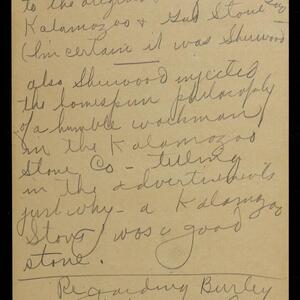 to the original
Kalamazoo & Gas Stove Co
(I'm certain it was Sherwood
also Sherwood injected
the homespun philosophy
of a humble workman
in the Kalamazoo
Stove Co - telling
in the advertisements
just why - a Kalamazoo
Stove was a good
stone.
Regarding Burley